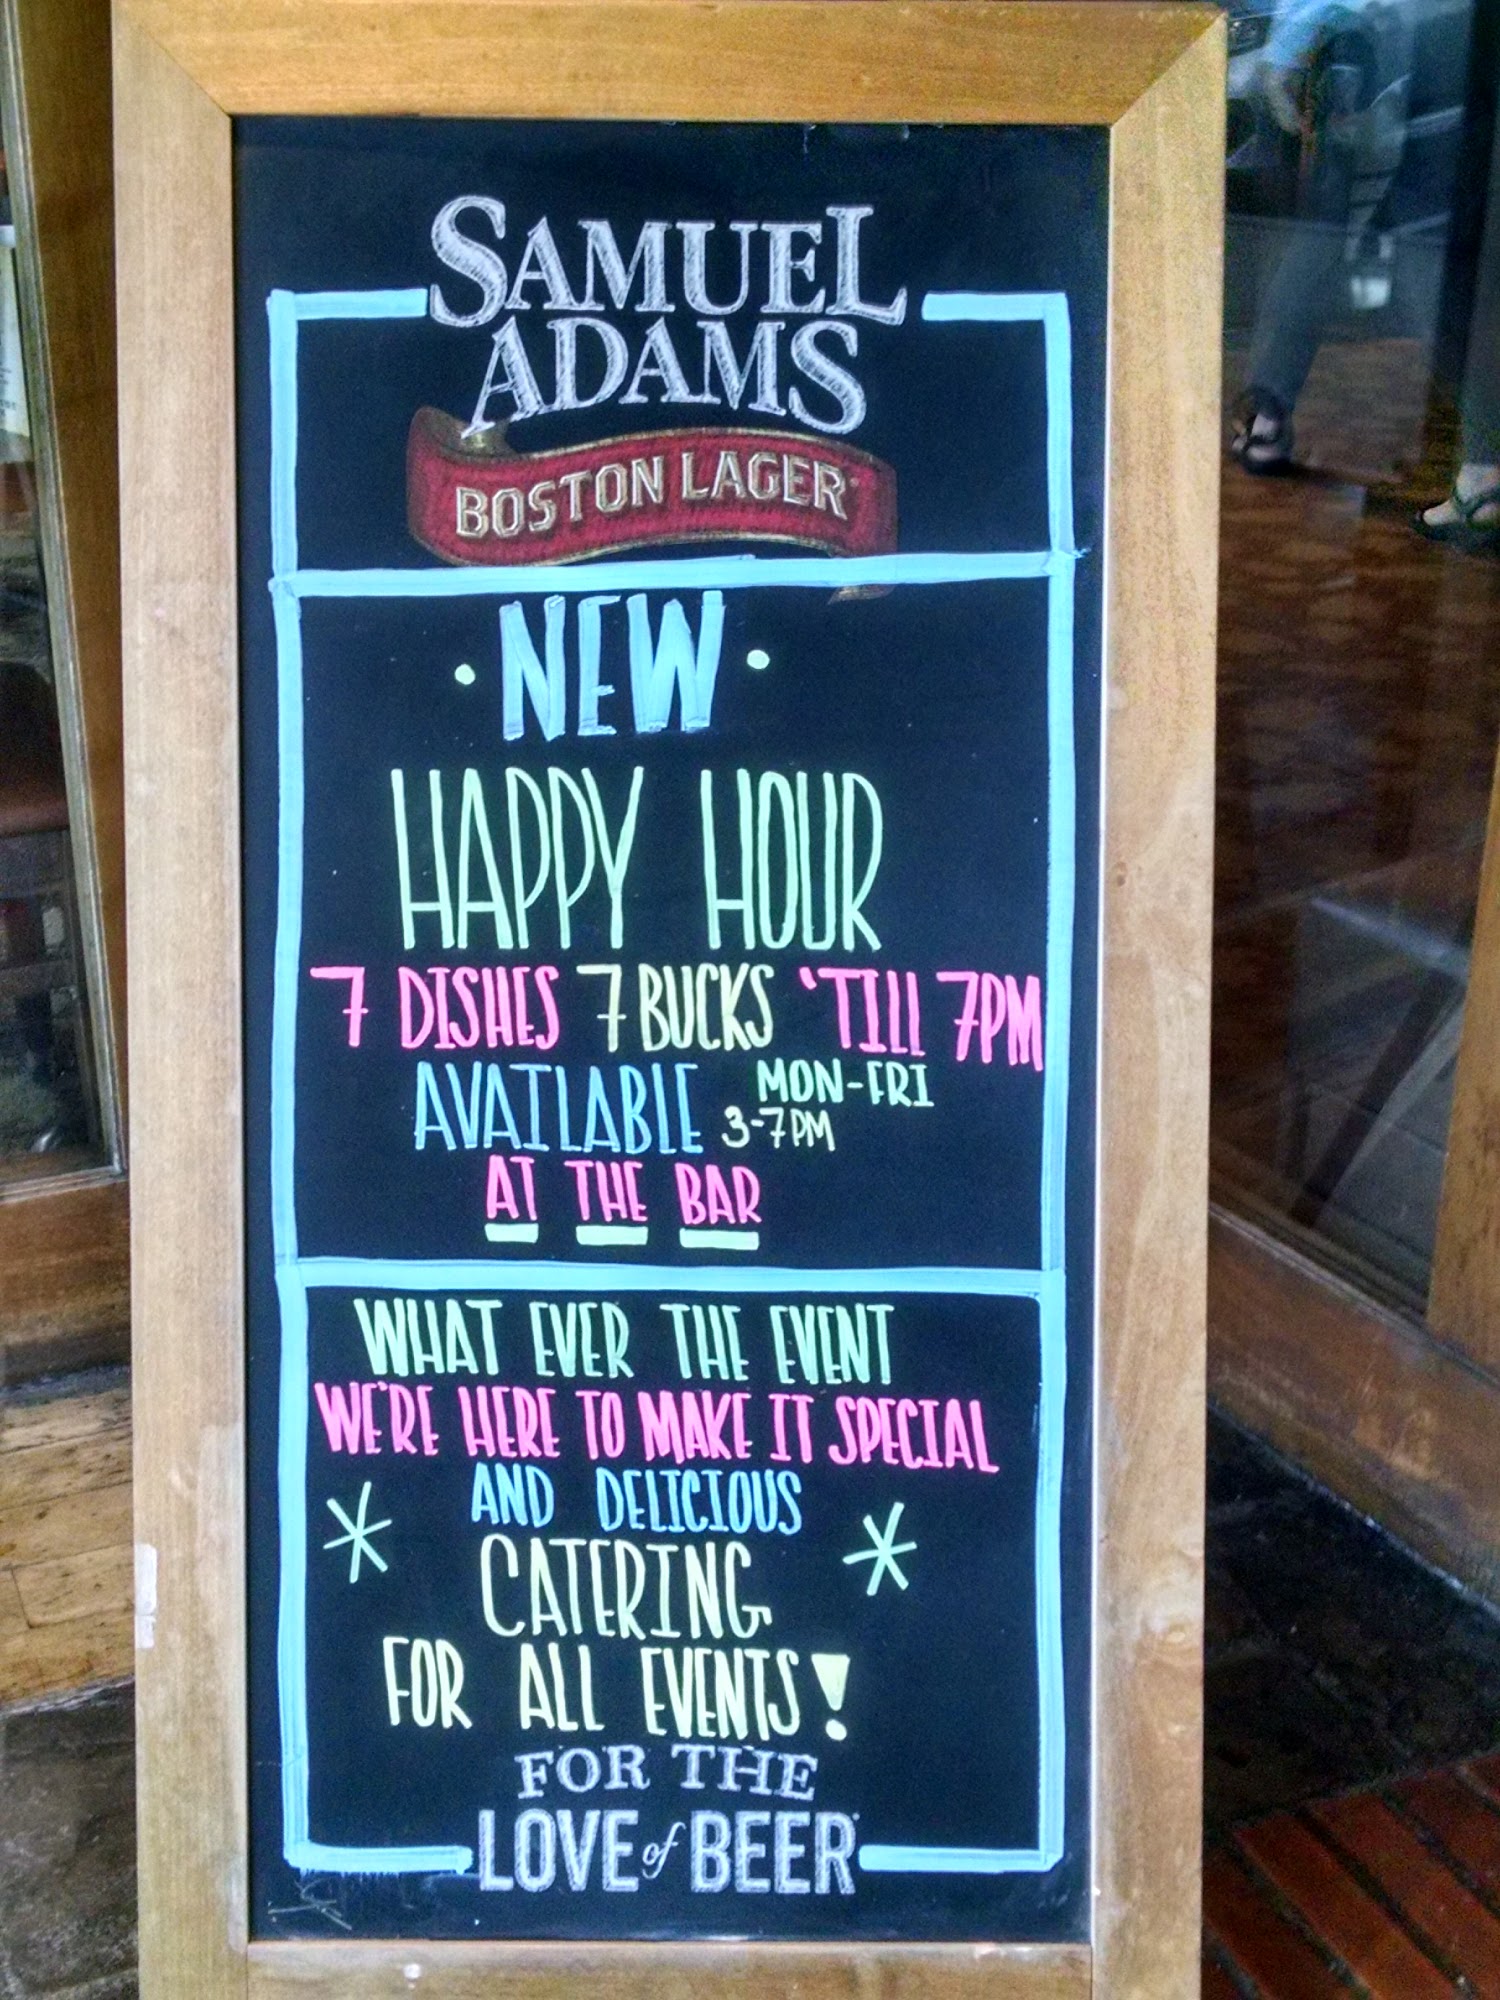 SAMUEL
ADAMS
BOSTON LAGER
• NEW •
HAPPY HOUR
7 DISHES 7 BUCKS 'TILL 7PM
AVAILABLE MON-FRI
3-7PM
AT THE BAR
WHAT EVER THE EVENT
WE'RE HERE TO MAKE IT SPECIAL
AND DELICIOUS
CATERING
FOR ALL EVENTS!
FOR THE
LOVE of BEER